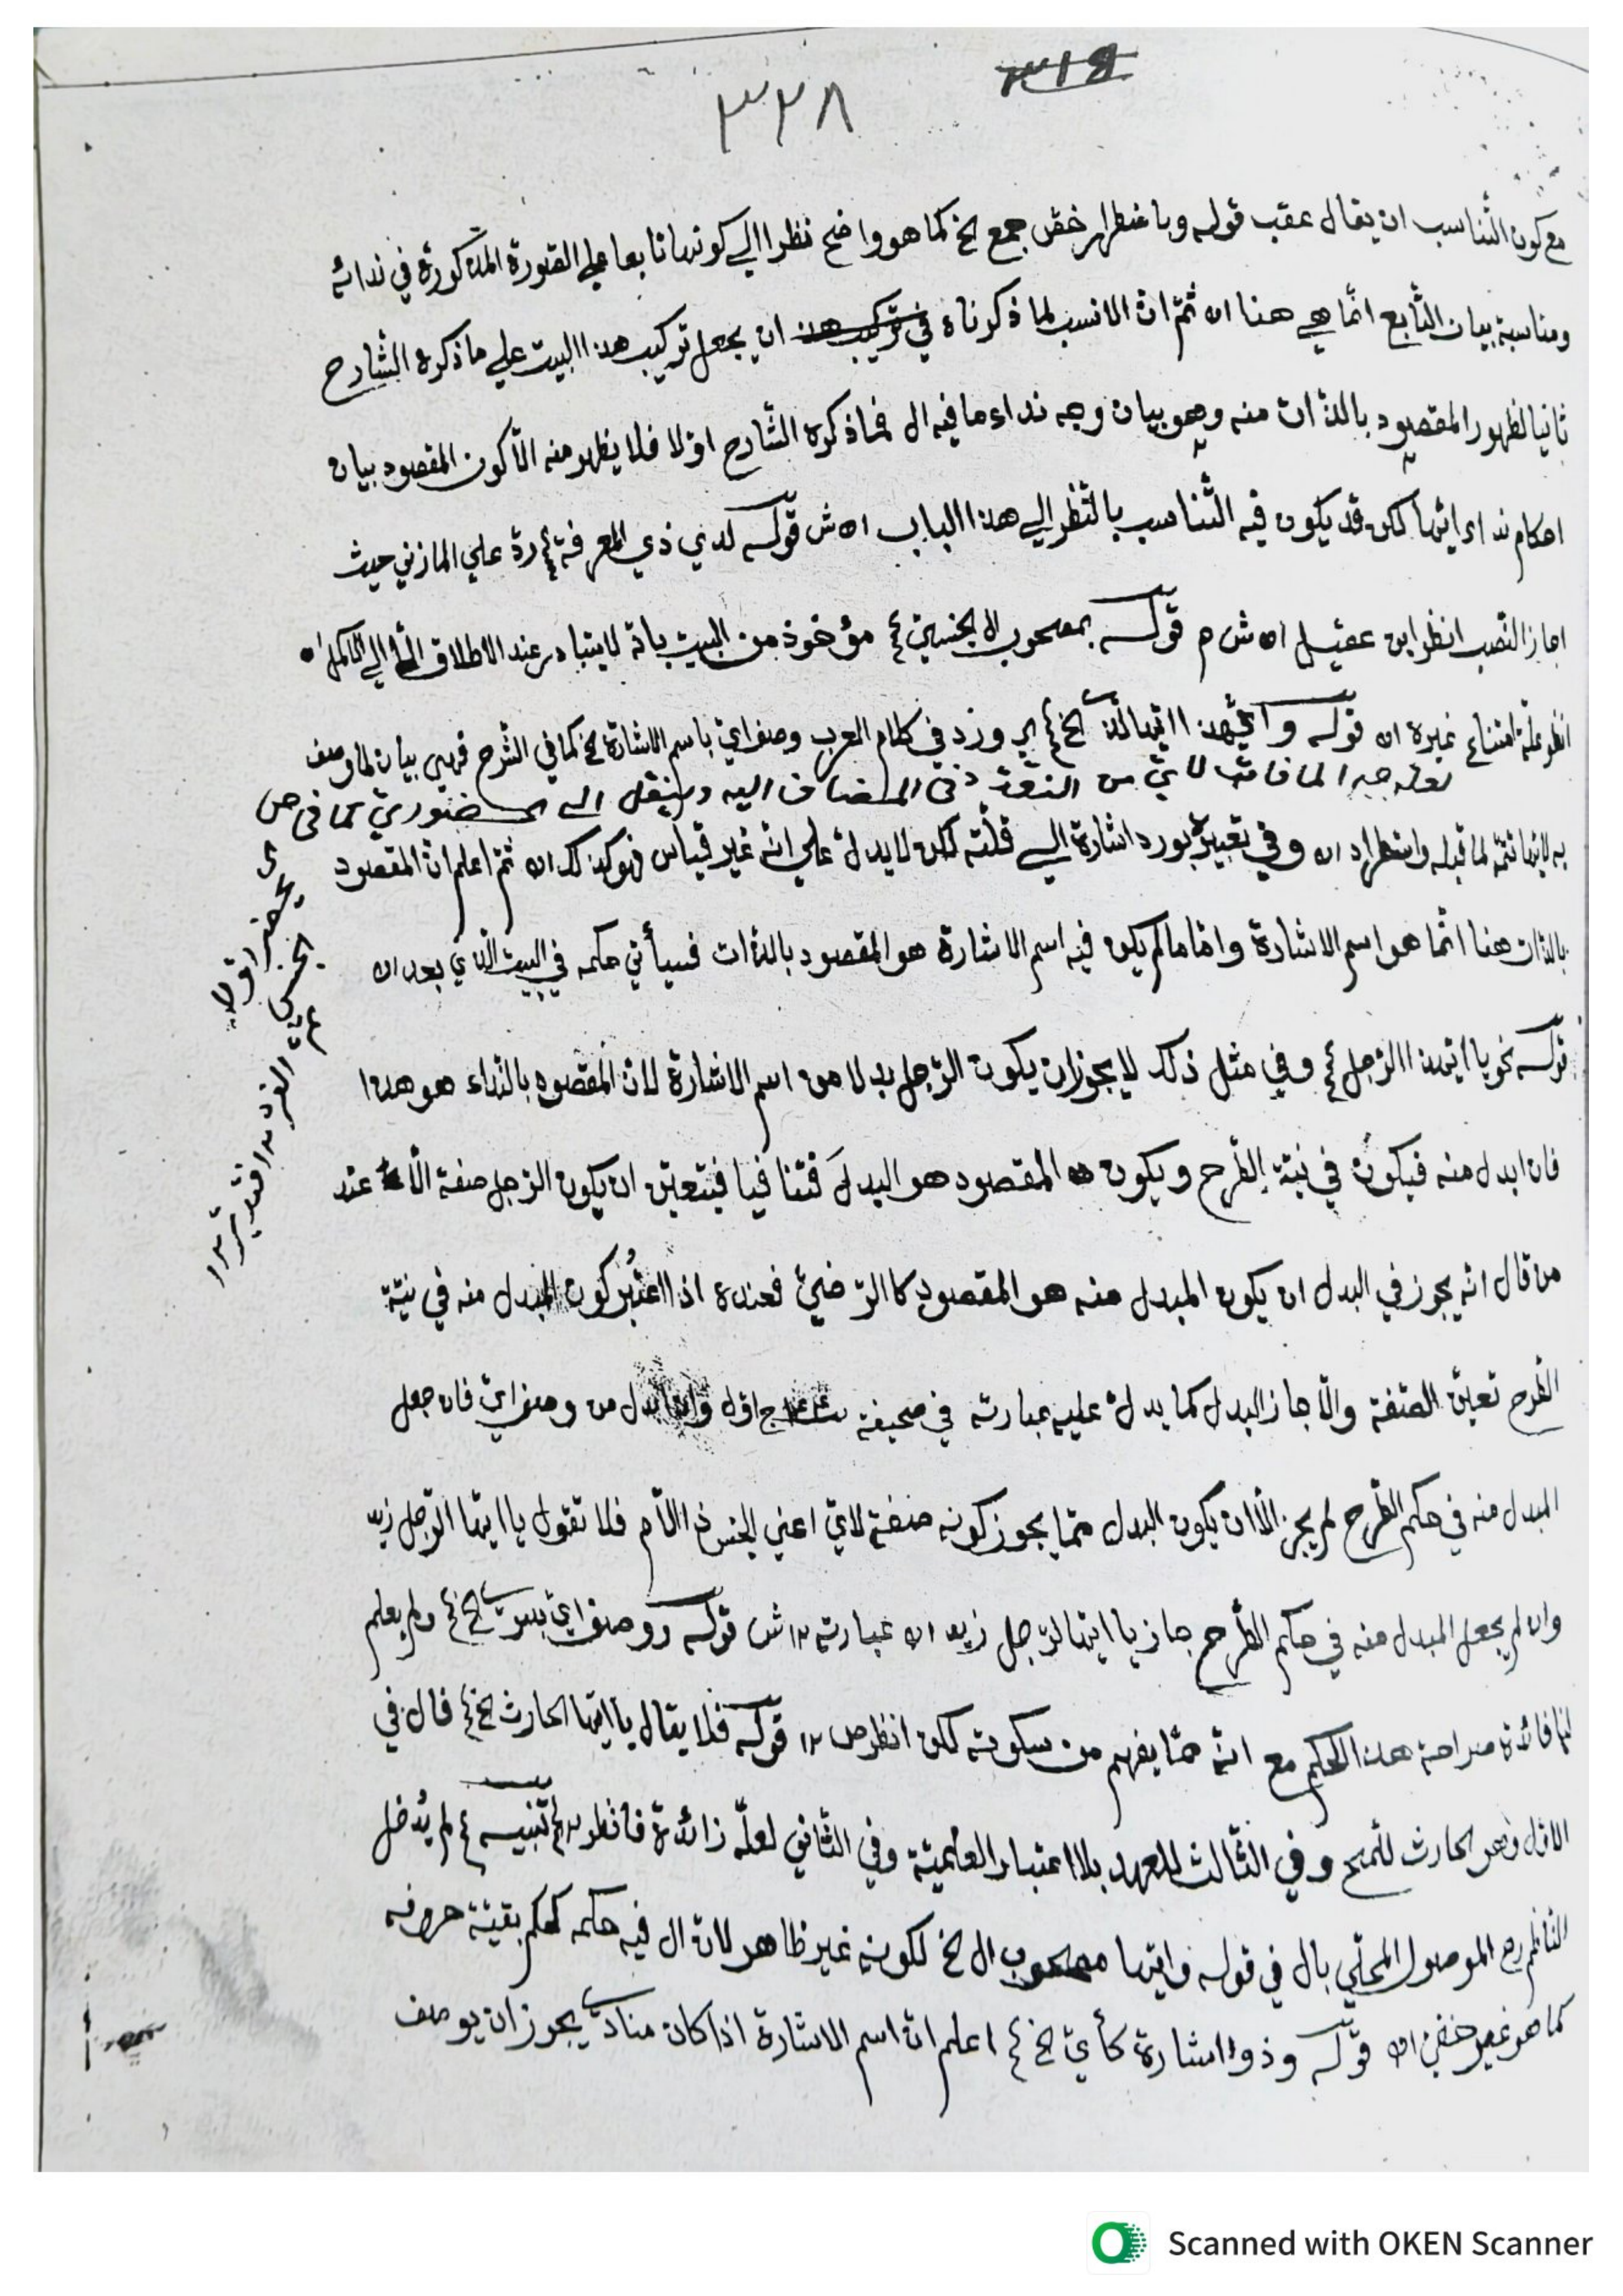 ٣١٩
٣٢٨
مع كون التناسب ان يقال عقب قوله وباضطرار خصّ جمع الخ كما هو واضح نظرا الي كونها تابعا علي الصورة المذكورة في ندائه
ومناسبة بيان التّابع انّما هي هنا اه ثمّ انّ الانسب لما ذكرناه في تركيب هذا ان يجعل تركيب هذا البيت علي ما ذكره الشّارح
ثانيا لظهور المقصود بالذّات منه وهو بيان وجه نداء ما فيه ال فما ذكره الشّارح اوّلا فلا يظهر منه الّا كون المقصود بيان
احكام نداء ايّها لكن قد يكون فيه التّناسب بالنّظر الي هذا الباب اه ش قوله لدي ذي المعرفة ردّ علي المازني حيث
اجاز النّصب انظر ابن عقيل اه ش م قوله بمصحوب ال الجنسيّة مؤخوذ من البيت بانّه لا يتبادر عند الاطلاق الّا الي الكامل اه
انظر علّة امتناع غيره اه قوله وايّهذا ايّها الّذي الخ اي ورد في كلام العرب وصف اي باسم الاشارة الخ كما في الشّرح فهي بيان لما وصف
من النّعت في المضاف اليه
به لانّها تتمّة لما قبله واستطراد اه وفي تعبيره بورد اشارة الي قلّته لكن لا يدلّ علي انّه غير قياس فهو كذلك اه ثمّ اعلم انّ المقصود
بالذّات هنا انّما هو اسم الاشارة وامّا ما لم يكن فيه اسم الاشارة هو المقصود بالذّات فسيأتي حكمه في البيت الّذي بعد اه
قوله نحو يا ايّهذا الرّجل وفي مثل ذلك لا يجوز ان يكون الرّجل بدلا من اسم الاشارة لانّ المقصود بالنّداء هو هذا
فان ابدل منه فيكون في نيّة الطّرح ويكون المقصود هو البدل فتنافيا فيتعيّن ان يكون الرّجل صفة الّا عند
من قال انّه يجوز في البدل ان يكون المبدل منه هو المقصود كالرّضيّ فعنده اذا اعتُبر كون المبدل منه في نيّة
الطّرح تعيّن الصّفة والّا جاز البدل كما يدلّ عليه عبارته في صحيفة ج اوّل وان ابدل من وصف ايّ فان جعل
المبدل منه في حكم الطّرح لم يجز الّا ان يكون البدل ممّا يجوز كونه صفة لايّ اعني الجنس ذا اللّام فلا تقول يا ايّها الرّجل زيد
وان لم يجعل المبدل منه في حكم الطّرح جاز يا ايّها الرّجل زيد اه عبارته ١٢ ش قوله ووصف اي بسوي الخ ولم يعلم
لها فائدة صراحة هذا الحكم مع انّه ممّا يفهم من سكوته لكن انظر ص ١٢ قوله فلا يقال يا ايّها الحارث الخ قال في
الاوّل وهو الحارث للّمح وفي الثّالث للعهد بلا اعتبار العلميّة وفي الثّاني لعلّه زائدة فانظر تنبيه لم يُدخل
النّاظم رح الموصول المحلّي بال في قوله وايّها مصحوب ال الخ لكونه غير ظاهر لانّ ال فيه حكمه كحكم بقيّة حروفه
كما هو غير خفيّ اه قوله وذو اشارة كأيّ الخ اعلم انّ اسم الاشارة اذا كان منادي يجوز ان يوصف
Scanned with OKEN Scanner